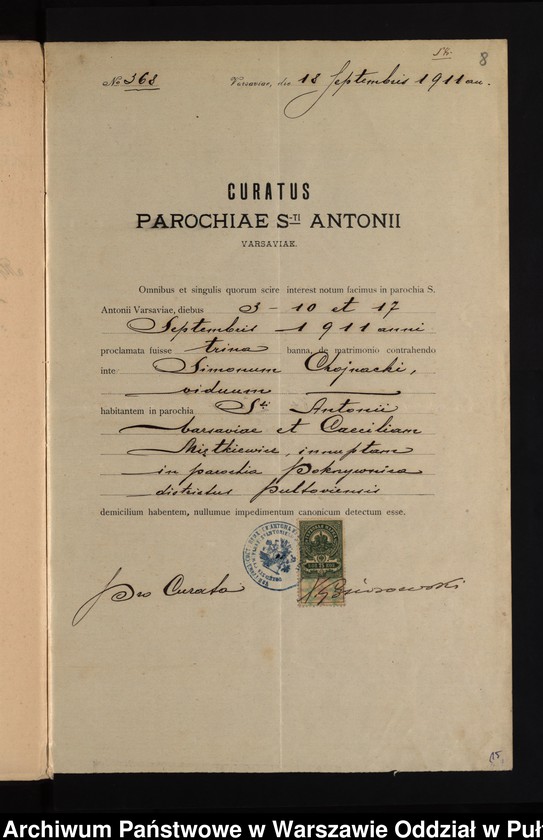 8
No 368 Varsaviae, die 18 Septembris 1911 an.
CURATUS
PAROCHIAE S-TI ANTONII
VARSAVIAE.
Omnibus et singulis quorum scire interest notum facimus in parochia S.
Antonii Varsaviae, diebus 3 - 10 et 17
Septembris 1911 anni
proclamata fuisse trina banna, de matrimonio contrahendo
inte Simonum Chojnacki,
viduum
habitantem in parochia S-ti Antonii
Varsaviae et Caeciliam
Miętkiewicz, innuptam
in parochia Pokrzywnica
districtus Pultoviensis
demicilium habentem, nullumue impedimentum canonicum detectum esse.
Pro Curato
15
Archiwum Państwowe w Warszawie Oddział w Puł